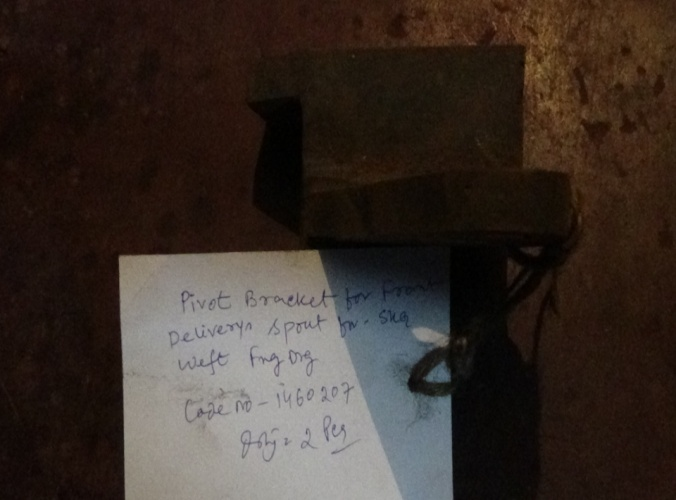 Pivot Bracket for Front
Delivery Spout for
Weft Fng
Code no - 1460207
= 2 Pcs